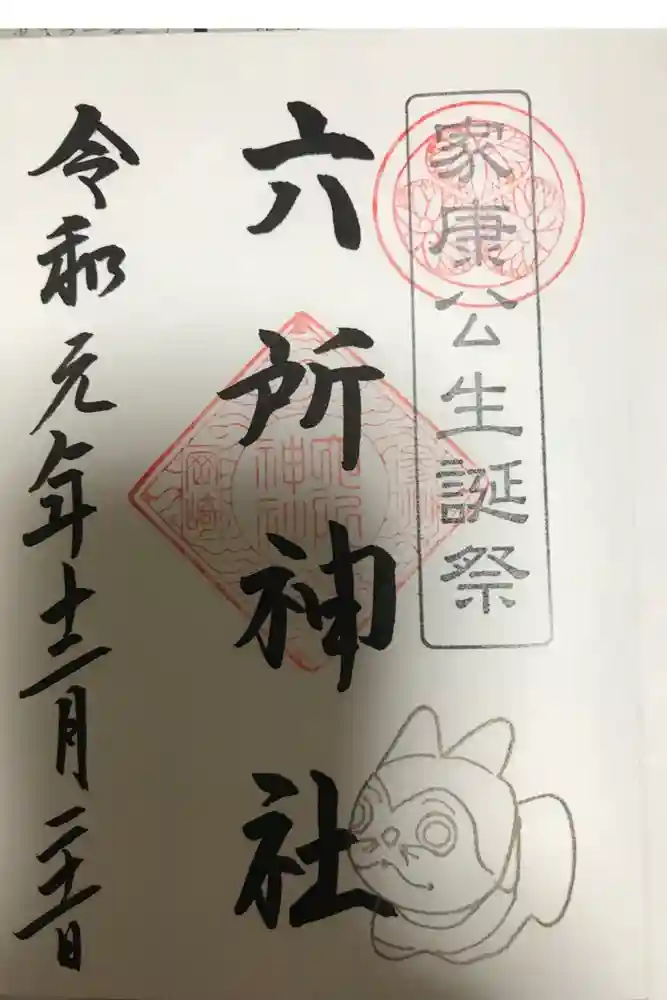 家康公生誕祭
六所神社
六所
神社
岡崎
令和元年十二月二十二日